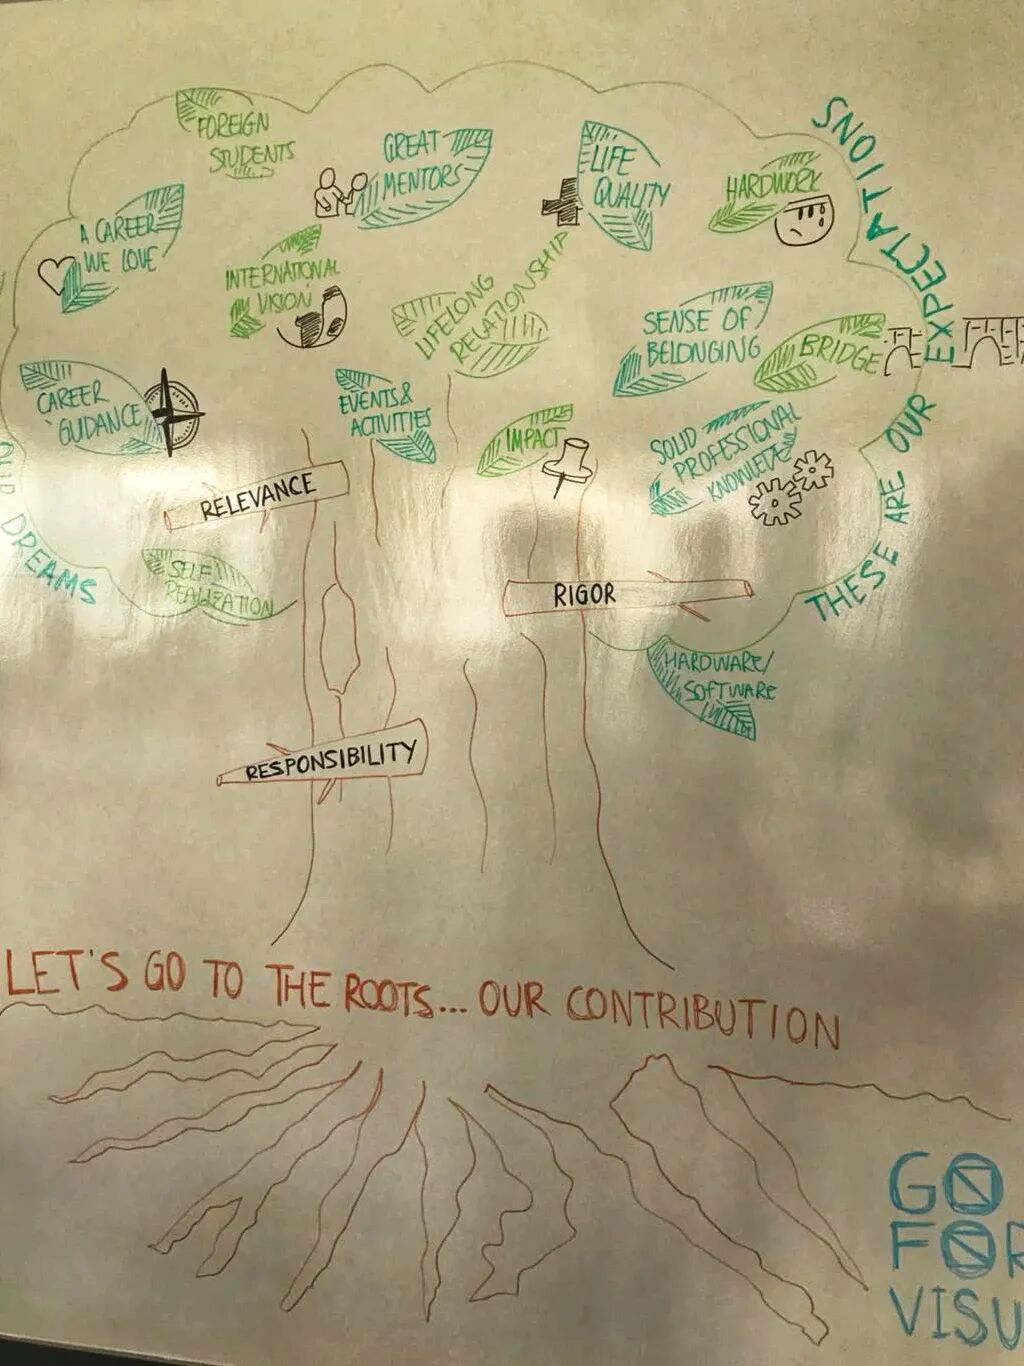 FOREIGN
STUDENTS
GREAT
MENTORS
LIFE
QUALITY
HARDWORK
A CAREER
WE LOVE
INTERNATIONAL
VISION
LIFELONG
RELATIONSHIP
SENSE OF
BELONGING
BRIDGE
CAREER
GUIDANCE
EVENTS &
ACTIVITIES
IMPACT
SOLID
PROFESSIONAL
THESE ARE OUR EXPECTATIONS
DREAMS
RELEVANCE
SELF
REALIZATION
RIGOR
HARDWARE/
SOFTWARE
RESPONSIBILITY
LET'S GO TO THE ROOTS... OUR CONTRIBUTION
GO
FOR
VISU